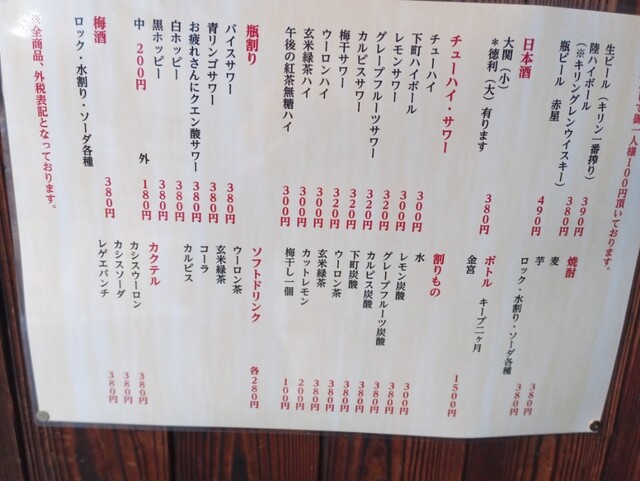 御一人様100円頂いております。
生ビール(キリン一番搾り) 390円
陸ハイボール 380円
(※キリングレンウイスキー)
瓶ビール 赤星 490円
日本酒
大関(小) 380円
*徳利(大)有ります
チューハイ・サワー
チューハイ 300円
下町ハイボール 300円
レモンサワー 320円
グレープフルーツサワー 320円
カルピスサワー 320円
梅干サワー 320円
ウーロンハイ 300円
玄米緑茶ハイ 300円
午後の紅茶無糖ハイ 300円
瓶割り
バイスサワー 380円
青リンゴサワー 380円
お疲れさんにクエン酸サワー 380円
白ホッピー 380円
黒ホッピー 380円
中 200円 外 180円
梅酒
ロック・水割り・ソーダ各種 380円
※全商品、外税表記となっております。
焼酎
麦 380円
芋 380円
ロック・水割り・ソーダ各種
ボトル キープ二ヶ月
金宮 1500円
割りもの
水 300円
レモン炭酸 380円
グレープフルーツ炭酸 380円
カルピス炭酸 380円
下町炭酸 380円
ウーロン茶 380円
玄米緑茶 380円
カットレモン 200円
梅干し一個 100円
ソフトドリンク 各280円
ウーロン茶
玄米緑茶
コーラ
カルピス
カクテル
カシスウーロン 380円
カシスソーダ 380円
レゲエパンチ 380円